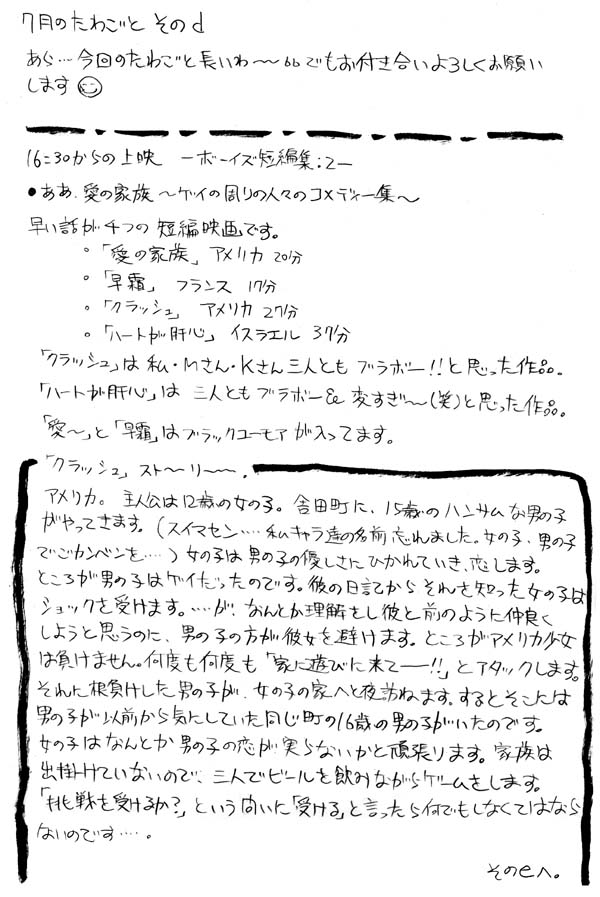 7月のたわごと その d
あら…今回のたわごと長いわ〜〜bbでもお付き合いよろしくお願い
します
16:30からの上映 ーボーイズ短編集:2ー
●ああ、愛の家族 〜ゲイの周りの人々のコメディー集〜
早い話が4つの短編映画です。
。「愛の家族」 アメリカ 20分
。「早霜」 フランス 17分
。「クラッシュ」 アメリカ 27分
。「ハートが肝心」 イスラエル 37分
「クラッシュ」は私・Mさん・Kさん三人とも ブラボー!!と思った作品。
「ハートが肝心」は 三人とも ブラボー& 変すぎ〜(笑)と思った作品。
「愛〜」と「早霜」はブラックユーモア が入ってます。
「クラッシュ」スト〜リ〜〜。
アメリカ。主人公は12歳の女の子。舎田町に、15歳のハンサムな男の子
がやってきます。(スイマセン…私キャラ達の名前忘れました。女の子、男の子
でごカンベンを…)女の子は男の子の優しさにひかれていき、恋します。
ところが男の子はゲイだったのです。彼の日記からそれを知った女の子は
ショックを受けます。…が、なんとか理解をし彼と前のように仲良く
しようと思うのに、男の子の方が彼女を避けます。ところがアメリカ少女
は負けません。何度も何度も「家に遊びに来てー!!」とアタックします。
それに根負けした男の子が、女の子の家へと夜訪ねます。するとそこには
男の子が以前から気にしていた同じ町の16歳の男の子がいたのです。
女の子はなんとか男の子の恋が実らないかと頑張ります。家族は
出掛けていないので、三人でビールを飲みながらゲームをします。
「挑戦を受けるか?」という問いに「受ける」と言ったら何でもしなくてはなら
ないのです…。
そのeへ。